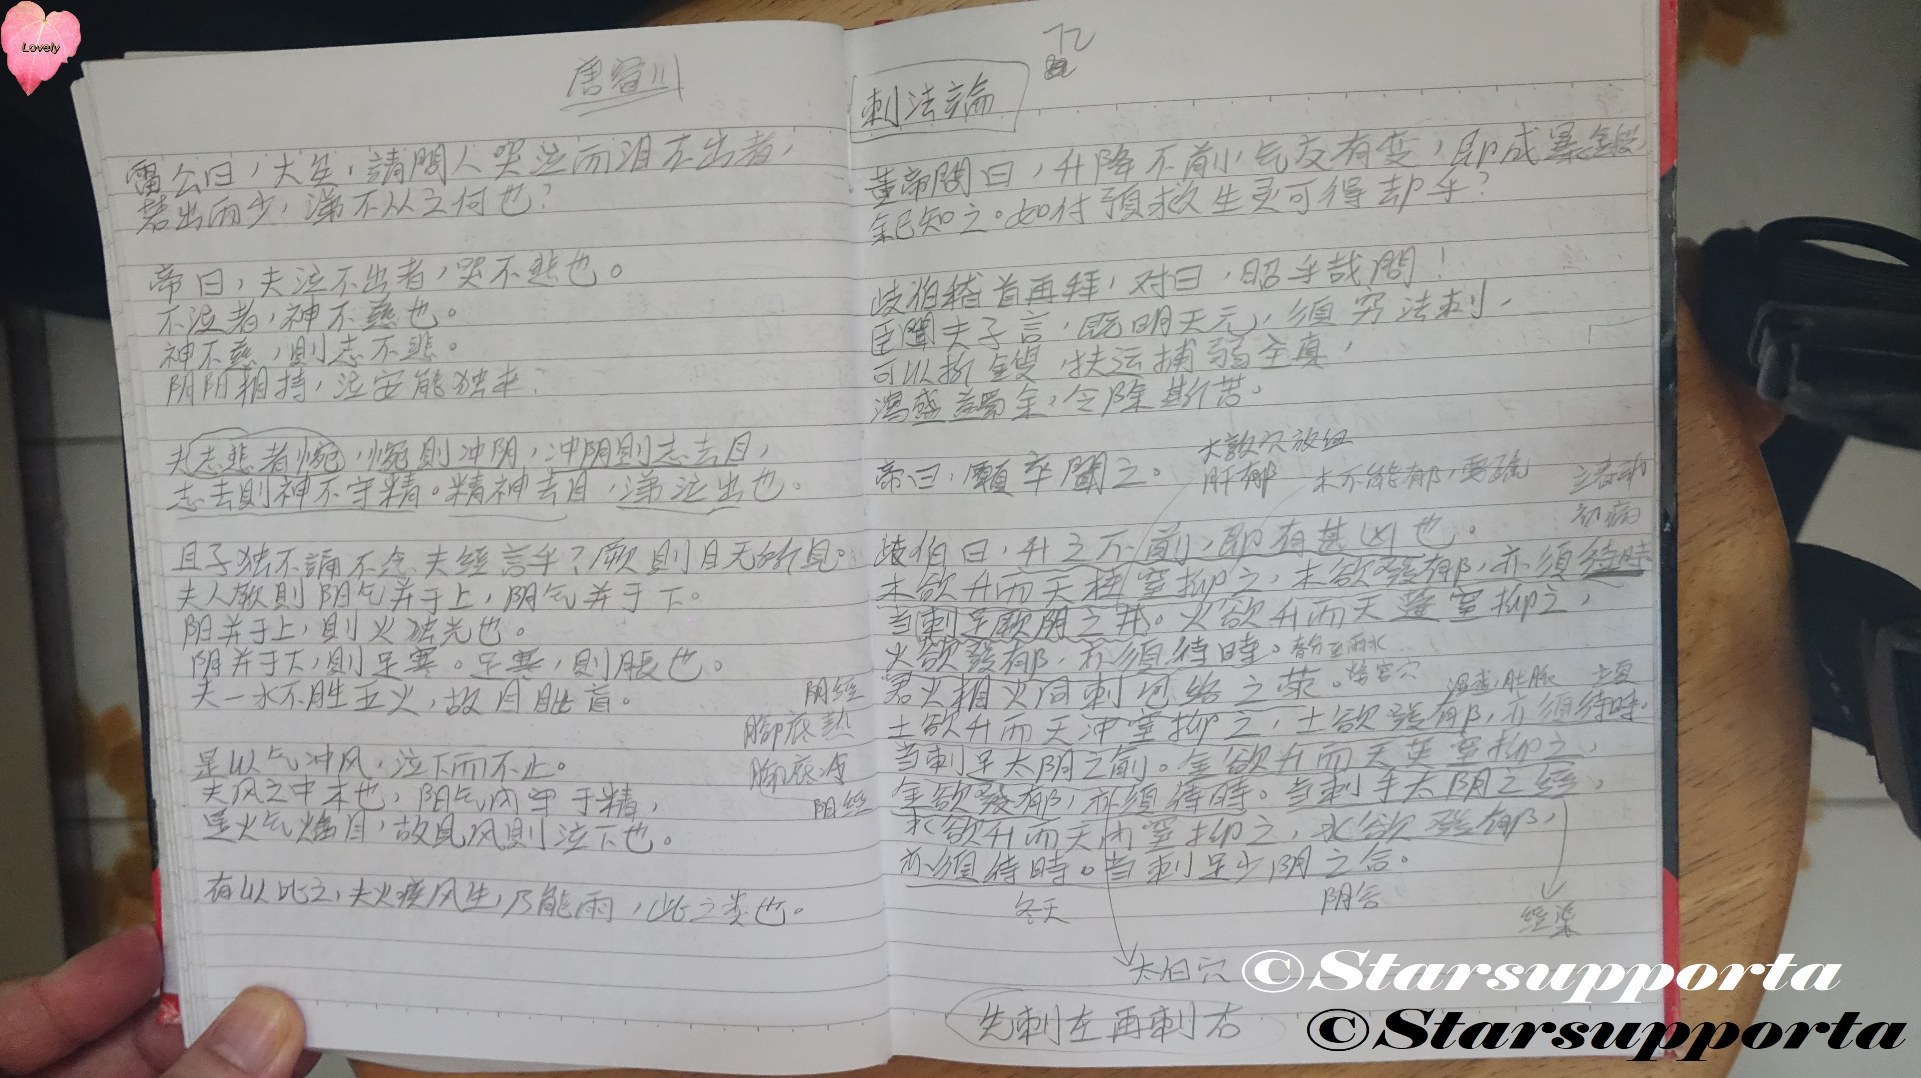 Lovely
唐容川
雷公曰,大生,請問人哭泣而泪不出者,
若出而少,涕不从之何也?
帝曰,夫泣不出者,哭不悲也。
不泣者,神不慈也。
神不慈,則志不悲。
阴阳相持,泣安能独来?
夫志悲者惋,惋則冲阴,冲阴則志去目,
志去則神不守精。精神去目,涕泣出也。
且子独不誦不念夫經言乎?厥則目无所見。
夫人厥則阳气并于上,阴气并于下。
阳并于上,則火独光也。
阴并于下,則足寒。足寒,則脹也。
夫一水不胜五火,故目眦盲。
阴經
腳底熱
腳底冷
阴經
是以气冲风,泣下而不止。
夫风之中本也,阳气内守于精,
是火气燔目,故見风則泣下也。
有以比之,夫火疾风生,乃能雨,此之类也。
刺法論
72
黄帝問曰,升降不前,气交有变,即成暴鬱,
余已知之。如何預救生灵可得却乎?
岐伯稽首再拜,对曰,昭乎哉問!
臣聞夫子言,既明天元,須穷法刺,
可以折鬱扶运補弱全真,
瀉盛蠲余,令除斯苦。
帝曰,願卒聞之。
大敦穴放血
肝郁
木不能郁,要疏
岐伯曰,升之不前,即有甚凶也。
木欲升而天柱窒抑之,木欲發郁,亦須待時
當刺足厥阴之井。火欲升而天蓬窒抑之,
火欲發郁,亦須待時。
君火相火同刺包络之荥。
土欲升而天冲窒抑之,土欲發郁,亦須待時,
當刺足太阴之俞。金欲升而天英窒抑之,
金欲發郁,亦須待時。當刺手太阴之經。
水欲升而天内窒抑之,水欲發郁,
亦須待時。當刺足少阴之合。
冬天
阴谷
經渠
太白穴
先刺左再刺右
©Starsupporta
©Starsupporta